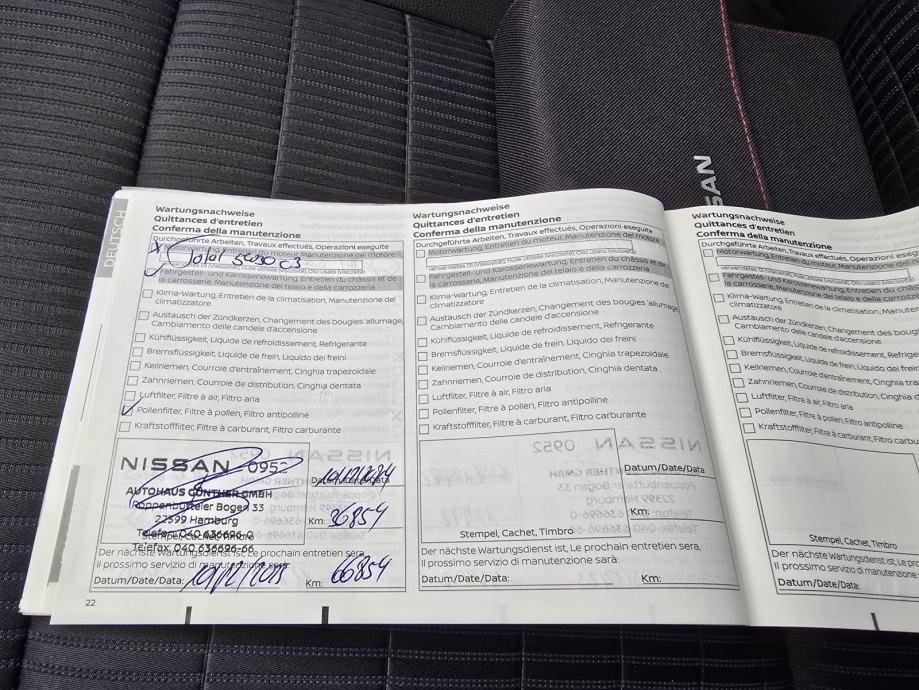 DEUTSCH
Wartungsnachweise
Quittances d'entretien
Conferma della manutenzione
Durchgeführte Arbeiten, Travaux effectués, Operazioni eseguite
Total 5W30 C3
Fahrgestell- und Karosseriewartung, Entretien du châssis et de
la carrosserie, Manutenzione del telaio e della carrozzeria
Klima-Wartung, Entretien de la climatisation, Manutenzione del
climatizzatore
Austausch der Zündkerzen, Changement des bougies 'allumage,
Cambiamento delle candele d'accensione
Kühlflüssigkeit, Liquide de refroidissement, Refrigerante
Bremsflüssigkeit, Liquide de frein, Liquido dei freini
Keilriemen, Courroie d'entraînement, Cinghia trapezoidale
Zahnriemen, Courroie de distribution, Cinghia dentata
Luftfilter, Filtre à air, Filtro aria
Pollenfilter, Filtre à pollen, Filtro antipolline
Kraftstofffilter, Filtre à carburant, Filtro carburante
NISSAN 0952
AUTOHAUS GÜNTHER GMBH
Poppenbütteler Bogen 33
22599 Hamburg
Telefon 040 636696-0
Telefax. 040 636696-66
Km: 36854
Der nächste Wartungsdienst ist, Le prochain entretien sera,
Il prossimo servizio di manutenzione sarà:
Datum/Date/Data:
Km: 66854
22
Wartungsnachweise
Quittances d'entretien
Conferma della manutenzione
Durchgeführte Arbeiten, Travaux effectués, Operazioni eseguite
Motorwartung, Entretien du moteur, Manutenzione del motore
Verwendetes Öl (Viskosität), Huile utilisée (viscosité), Olio usato (viscosità)
Fahrgestell- und Karosseriewartung, Entretien du châssis et de
la carrosserie, Manutenzione del telaio e della carrozzeria
Klima-Wartung, Entretien de la climatisation, Manutenzione del
climatizzatore
Austausch der Zündkerzen, Changement des bougies 'allumage,
Cambiamento delle candele d'accensione
Kühlflüssigkeit, Liquide de refroidissement, Refrigerante
Bremsflüssigkeit, Liquide de frein, Liquido dei freini
Keilriemen, Courroie d'entraînement, Cinghia trapezoidale
Zahnriemen, Courroie de distribution, Cinghia dentata
Luftfilter, Filtre à air, Filtro aria
Pollenfilter, Filtre à pollen, Filtro antipolline
Kraftstofffilter, Filtre à carburant, Filtro carburante
Datum/Date/Data
Km:
Stempel, Cachet, Timbro
Der nächste Wartungsdienst ist, Le prochain entretien sera,
Il prossimo servizio di manutenzione sarà:
Datum/Date/Data:
Km:
Wartungsnachweise
Quittances d'entretien
Conferma della manutenzione
Durchgeführte Arbeiten, Travaux effectués, Operazioni eseg
Motorwartung, Entretien du moteur, Manutenzione
Fahrgestell- und Karosseriewartung, Entretien du
la carrosserie, Manutenzione del telaio e della
Klima-Wartung, Entretien de la climatisation, Manute
climatizzatore
Austausch der Zündkerzen, Changement des bou
Cambiamento delle candele d'accensione
Kühlflüssigkeit, Liquide de refroidissement, Refrige
Bremsflüssigkeit, Liquide de frein, Liquido dei fre
Keilriemen, Courroie d'entraînement, Cinghia tra
Zahnriemen, Courroie de distribution, Cinghia
Luftfilter, Filtre à air, Filtro aria
Pollenfilter, Filtre à pollen, Filtro antipolline
Kraftstofffilter, Filtre à carburant, Filtro carbu
Stempel, Cachet, Timbro
Der nächste Wartungsdienst ist, Le pro
Il prossimo servizio di manutenzione s
Datum/Date/Data:
SSAN